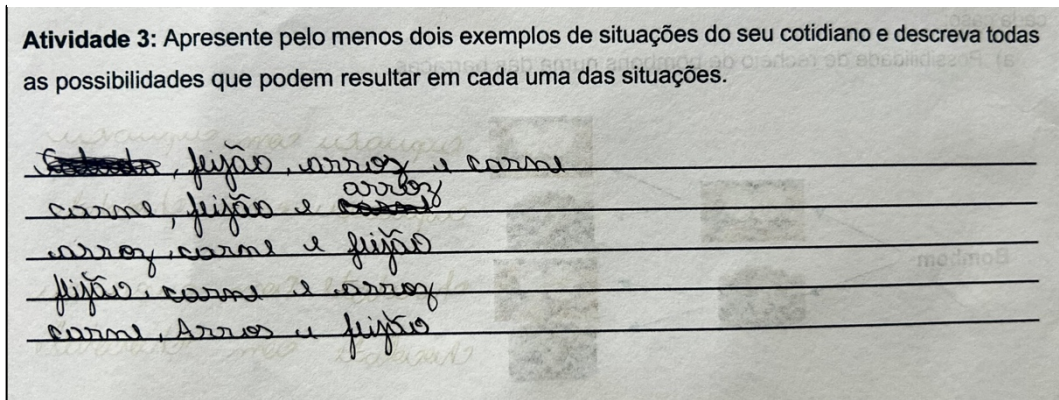 Atividade 3: Apresente pelo menos dois exemplos de situações do seu cotidiano e descreva todas
as possibilidades que podem resultar em cada uma das situações.
, feijão, arroz e carne
arroz
carne, feijão e
arroz, carne e feijão
feijão, carne e arroz
carne, Arros e feijão